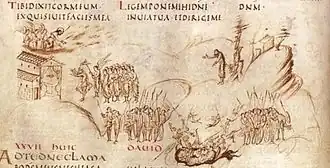 TIBIDIXITCORMEUM
EXQUISIUITFACIESMEA
LEGEMPONEMIHIDNE
INUIATUAETDIRIGEME
DNM
XXVII DAUID
ADTEDNECLAMA